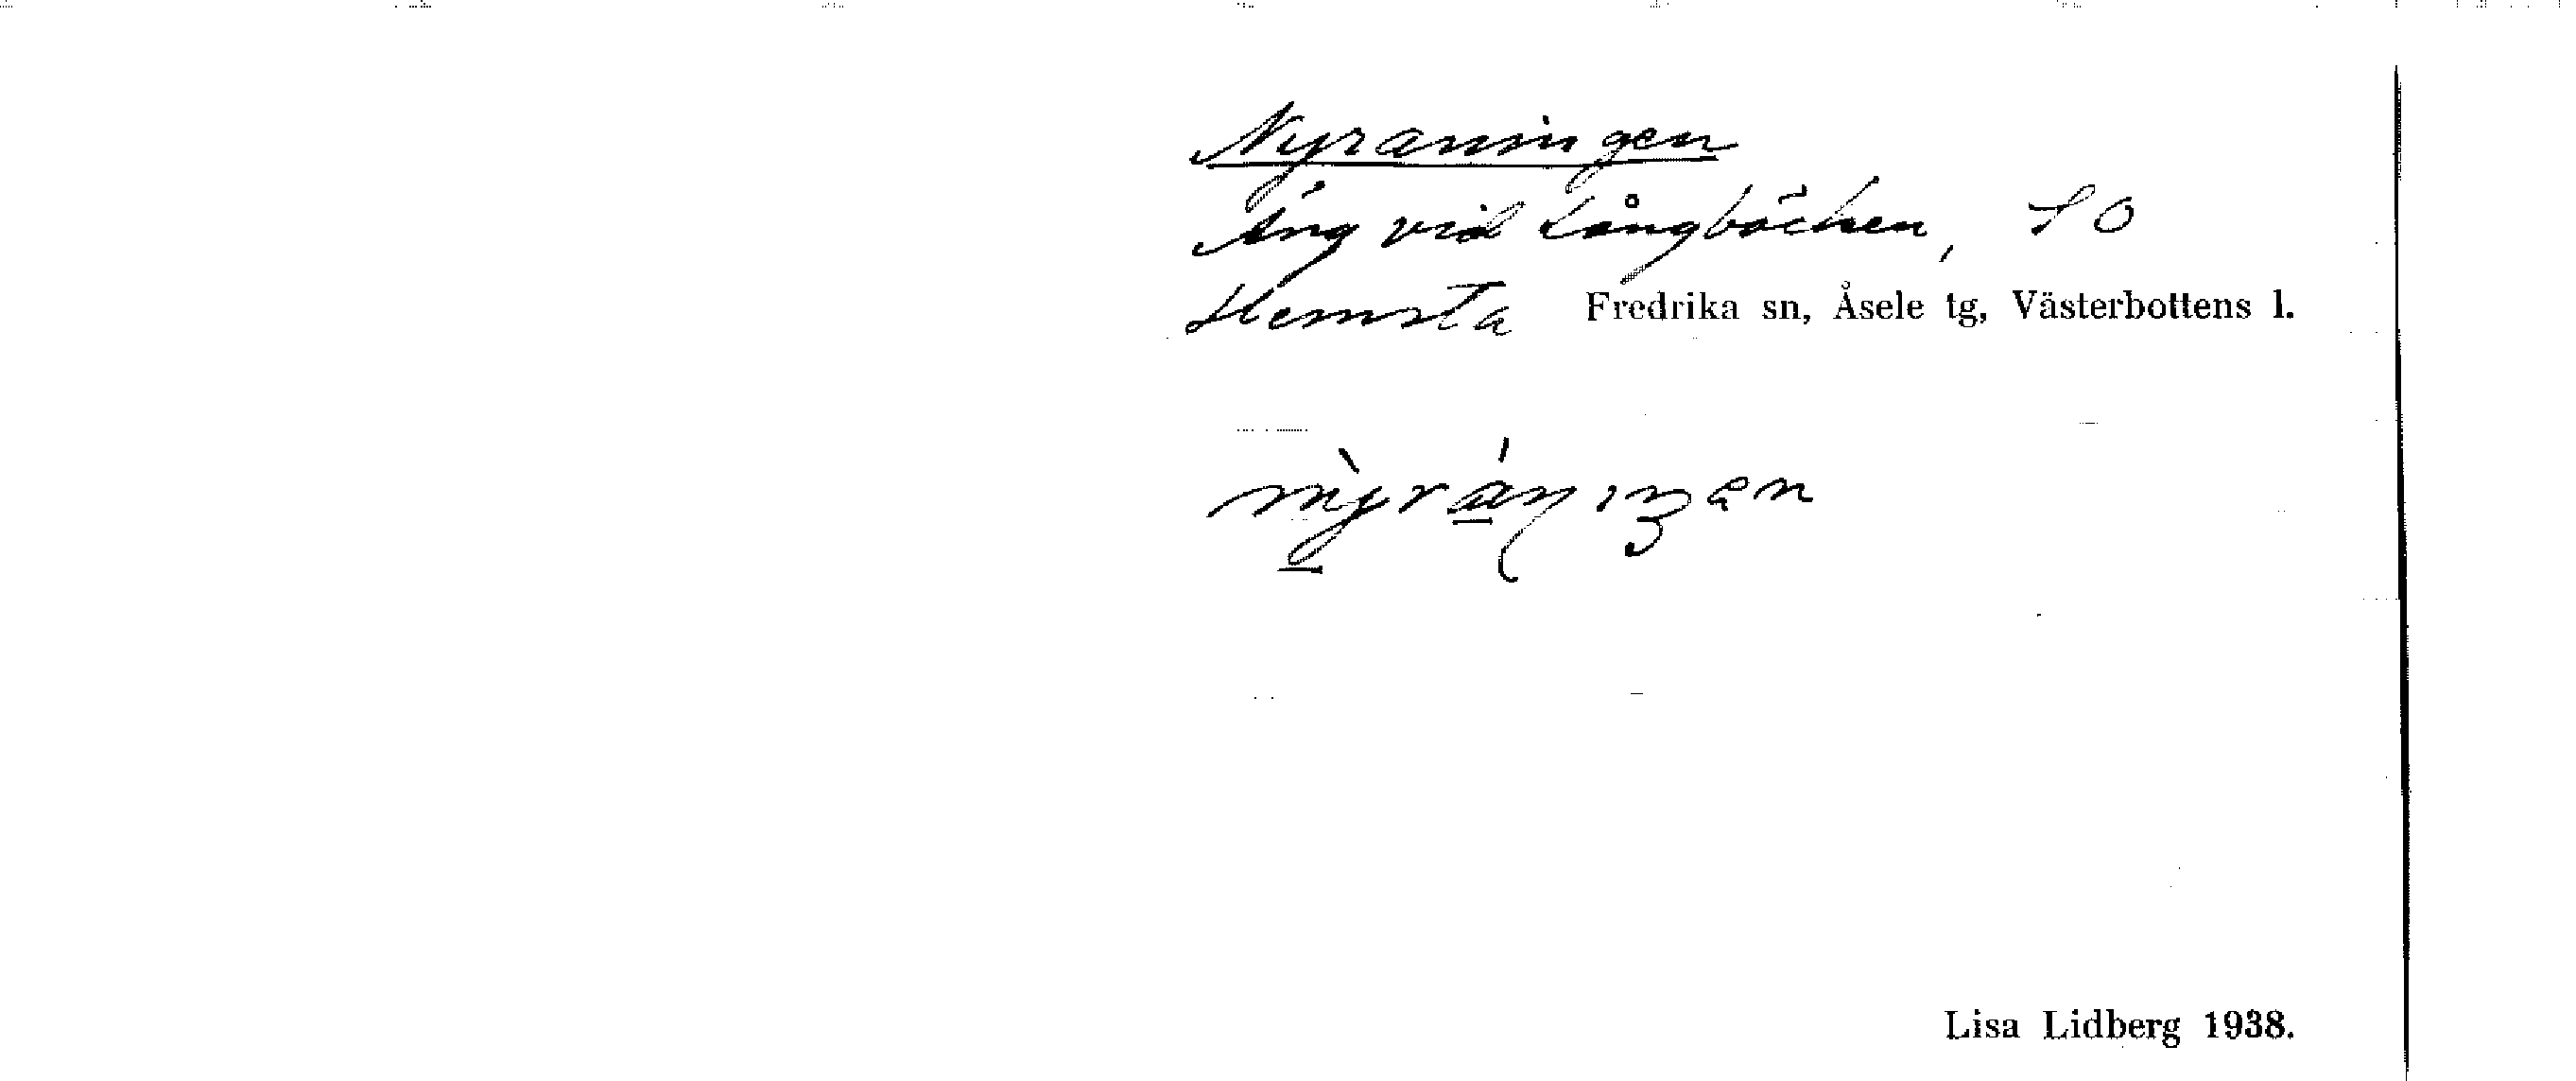 Nyraningen
Äng vid Långbäcken, SO
Hemsta Fredrika sn, Åsele tg, Västerbottens l.
Lisa Lidberg 1938.